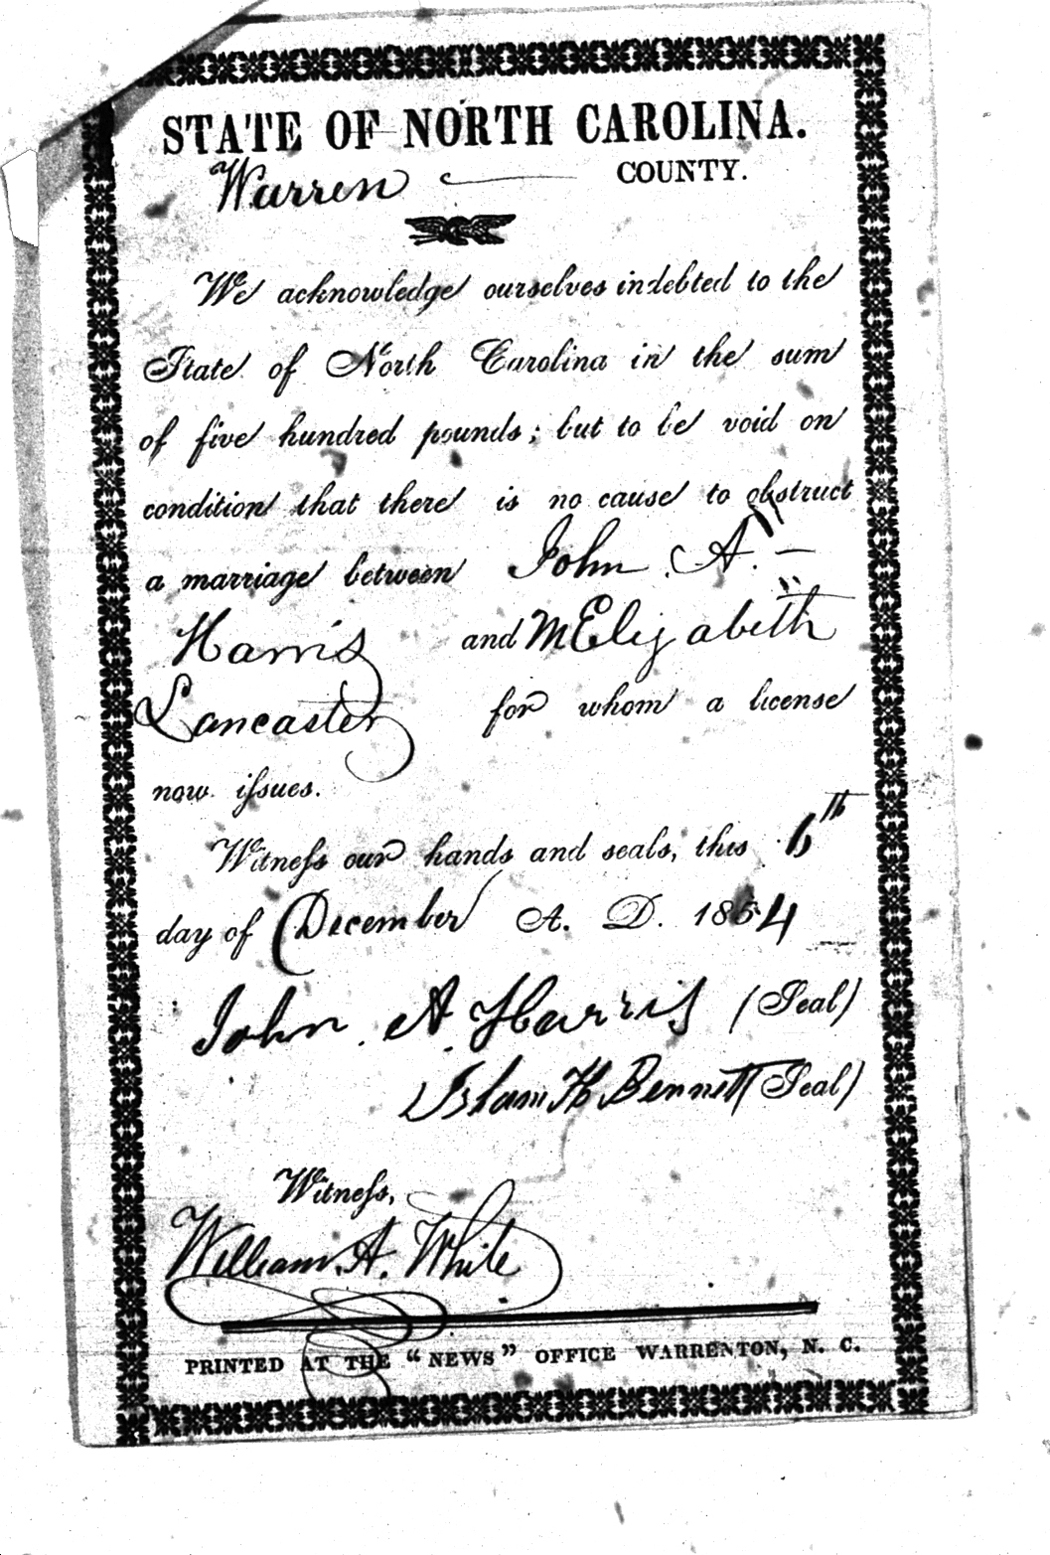 STATE OF NORTH CAROLINA.
Warren COUNTY.
We acknowledge ourselves indebted to the
State of North Carolina in the sum
of five hundred pounds; but to be void on
condition that there is no cause to obstruct
a marriage between John. A. —
Harris and M Elizabeth
Lancaster for whom a license
now issues.
Witness our hands and seals, this 6th
day of December A. D. 1854
John. A. Harris (Seal)
Isham H Bennett (Seal)
Witness,
William. A. White
PRINTED AT THE "NEWS" OFFICE WARRENTON, N. C.